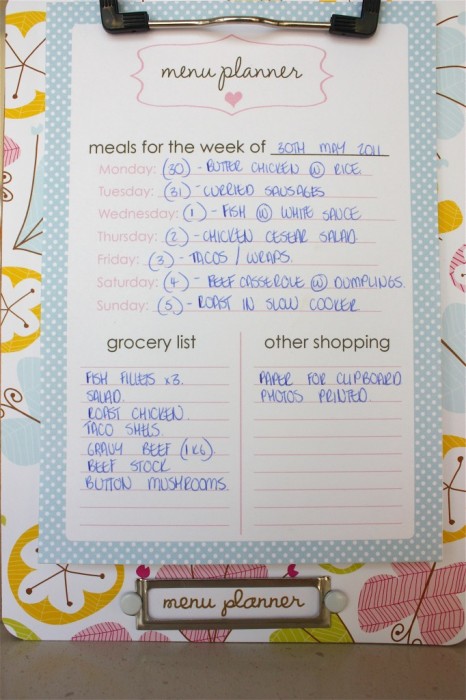 menu planner
meals for the week of 30TH MAY 2011
Monday: (30) - BUTTER CHICKEN @ RICE
Tuesday: (31) - CURRIED SAUSAGES
Wednesday: (1) - FISH @ WHITE SAUCE
Thursday: (2) - CHICKEN CESEAR SALAD.
Friday: (3) - TACOS / WRAPS.
Saturday: (4) - BEEF CASSEROLE @ DUMPLINGS.
Sunday: (5) - ROAST IN SLOW COOKER
grocery list
FISH FILLETS x3.
SALAD.
ROAST CHICKEN.
TACO SHELS.
GRAVY BEEF (1KG).
BEEF STOCK
BUTTON MUSHROOMS.
other shopping
PAPER FOR CLIPBOARD
PHOTOS PRINTED.
menu planner